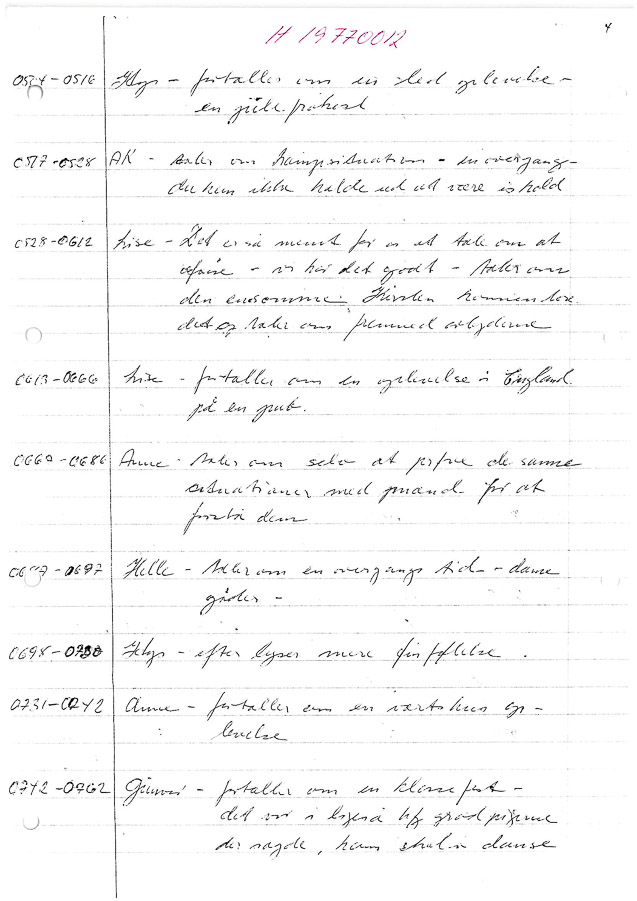 4
H 19770012
0574-0516 - fortaller om en led oplevelse -
en jule frokost
0517-0528 AK - taler om kampsituation - en overgang-
du kan ikke holde ud at være is kold
0528-0612 Lise - Det er så nemt for os at tale om at
- vi har det godt - taler om
den ensomme. Kirsten kommen
det og taler om fremmed arbejderne
0613-0666 Lise - fortaller om en oplevelse i England.
på en pub.
Anne - taler om selv at prøve de samme
situationer med mænd for at
forstå dem
-0697 Helle - taler om en overgangs tid - danse
gåder -
0698-0730 - efter lyser mere
0731-0742 Anne - fortaller om en værtshus op-
levelse
0742-0762 - fortaller om en klasse fest -
det var i ligeså høj grad pigerne
der sagde, kom skal vi danse